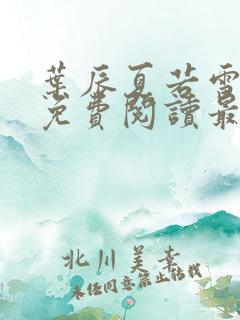 葉辰夏若雪
免費閱讀最
北川美幸
未經同意禁止轉載